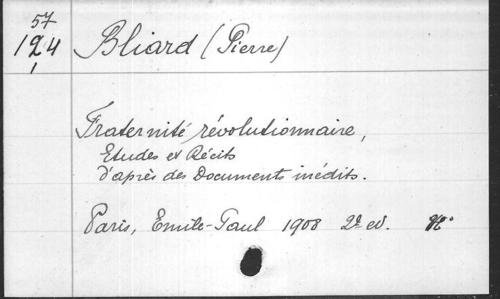 57
124 Bliard (Pierre)
1
Fraternité révolutionnaire,
Etudes et Récits
d'après des Documents inédits.
Paris, Emile-Paul 1908 2e ed.